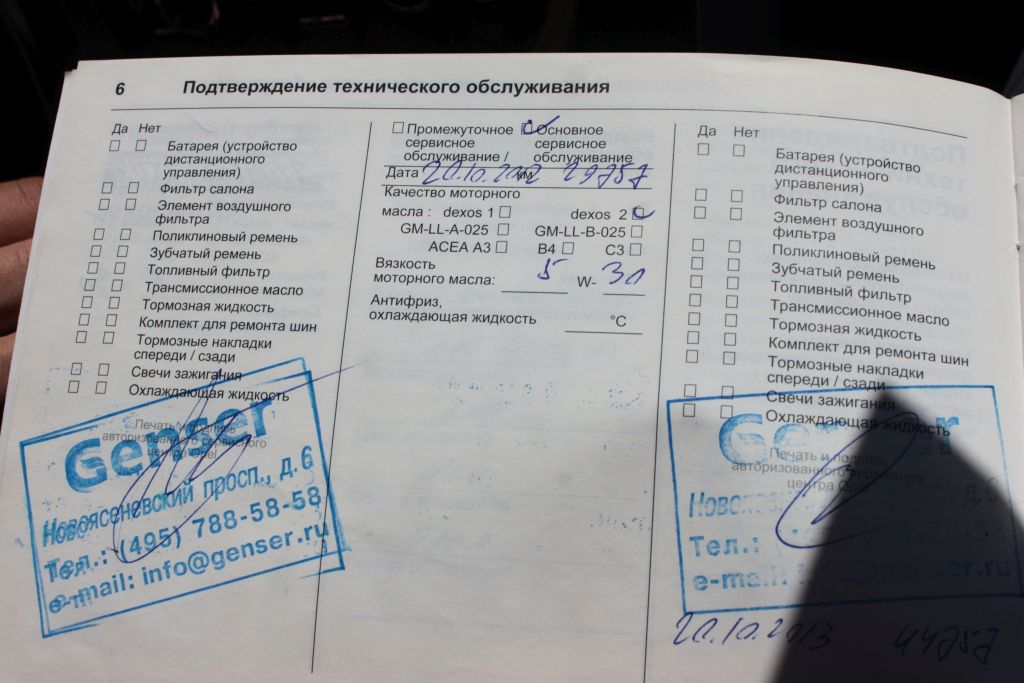 6 Подтверждение технического обслуживания
Да Нет
Батарея (устройство
дистанционного
управления)
Фильтр салона
Элемент воздушного
фильтра
Поликлиновый ремень
Зубчатый ремень
Топливный фильтр
Трансмиссионное масло
Тормозная жидкость
Комплект для ремонта шин
Тормозные накладки
спереди / сзади
Свечи зажигания
Охлаждающая жидкость
Печать и подпись
авторизованного сервисного
центра Opel
Genser
Новоясеневский просп., д. 6
Тел.: (495) 788-58-58
e-mail: info@genser.ru
Промежуточное Основное
сервисное сервисное
обслуживание / обслуживание
Дата 20.10.2012 км 29757
Качество моторного
масла : dexos 1 dexos 2
GM-LL-A-025 GM-LL-B-025
ACEA A3 B4 C3
Вязкость
моторного масла: 5 W- 30
Антифриз,
охлаждающая жидкость °C
Да Нет
Батарея (устройство
дистанционного
управления)
Фильтр салона
Элемент воздушного
фильтра
Поликлиновый ремень
Зубчатый ремень
Топливный фильтр
Трансмиссионное масло
Тормозная жидкость
Комплект для ремонта шин
Тормозные накладки
спереди / сзади
Свечи зажигания
Охлаждающая жидкость
Печать и подпись
авторизованного сервисного
центра
Genser
д. 6
Тел.:
e-mail: genser.ru
20.10.2013 44757